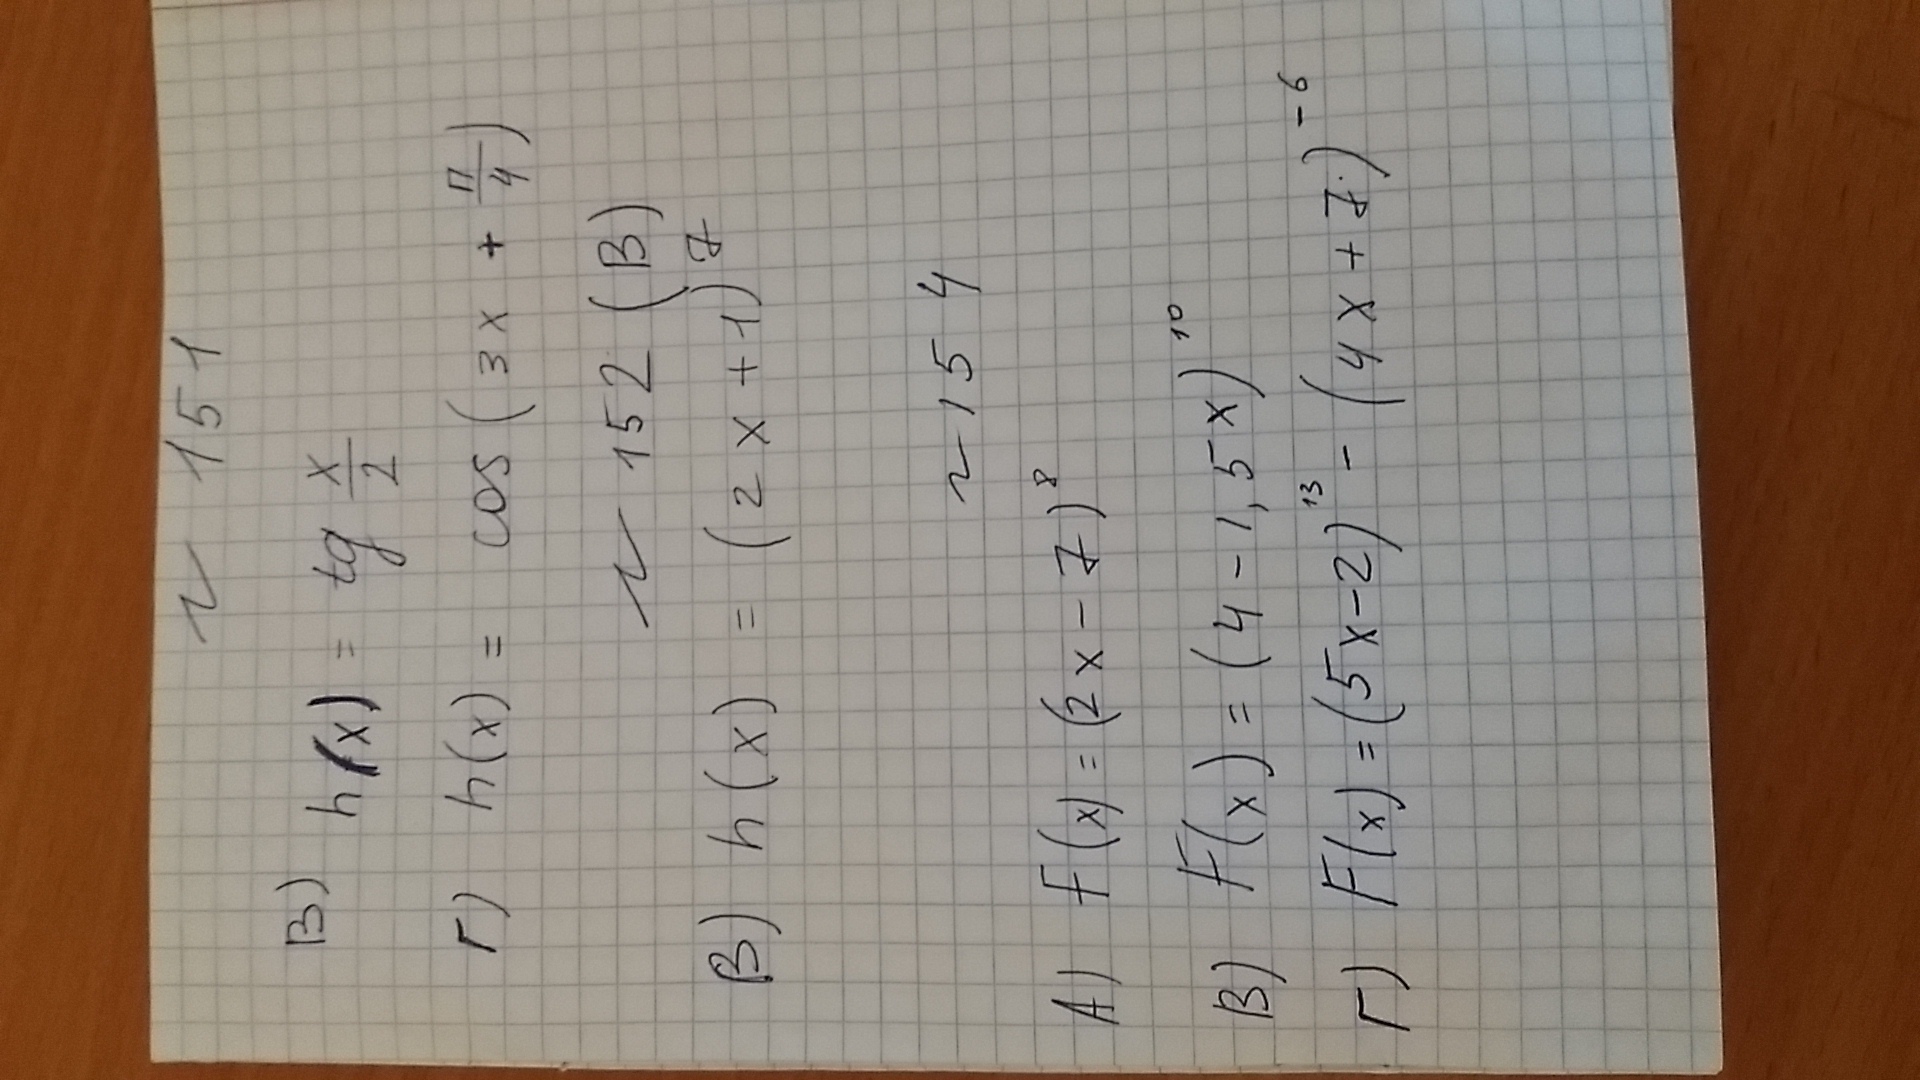 N 151
В) h(x) = tg x/2
Г) h(x) = cos(3x + π/4)
N 152 (В)
В) h(x) = (2x+1)^7
N 154
А) F(x) = (2x-7)^8
В) F(x) = (4-1,5x)^10
Г) F(x) = (5x-2)^13 - (4x+7)^-6